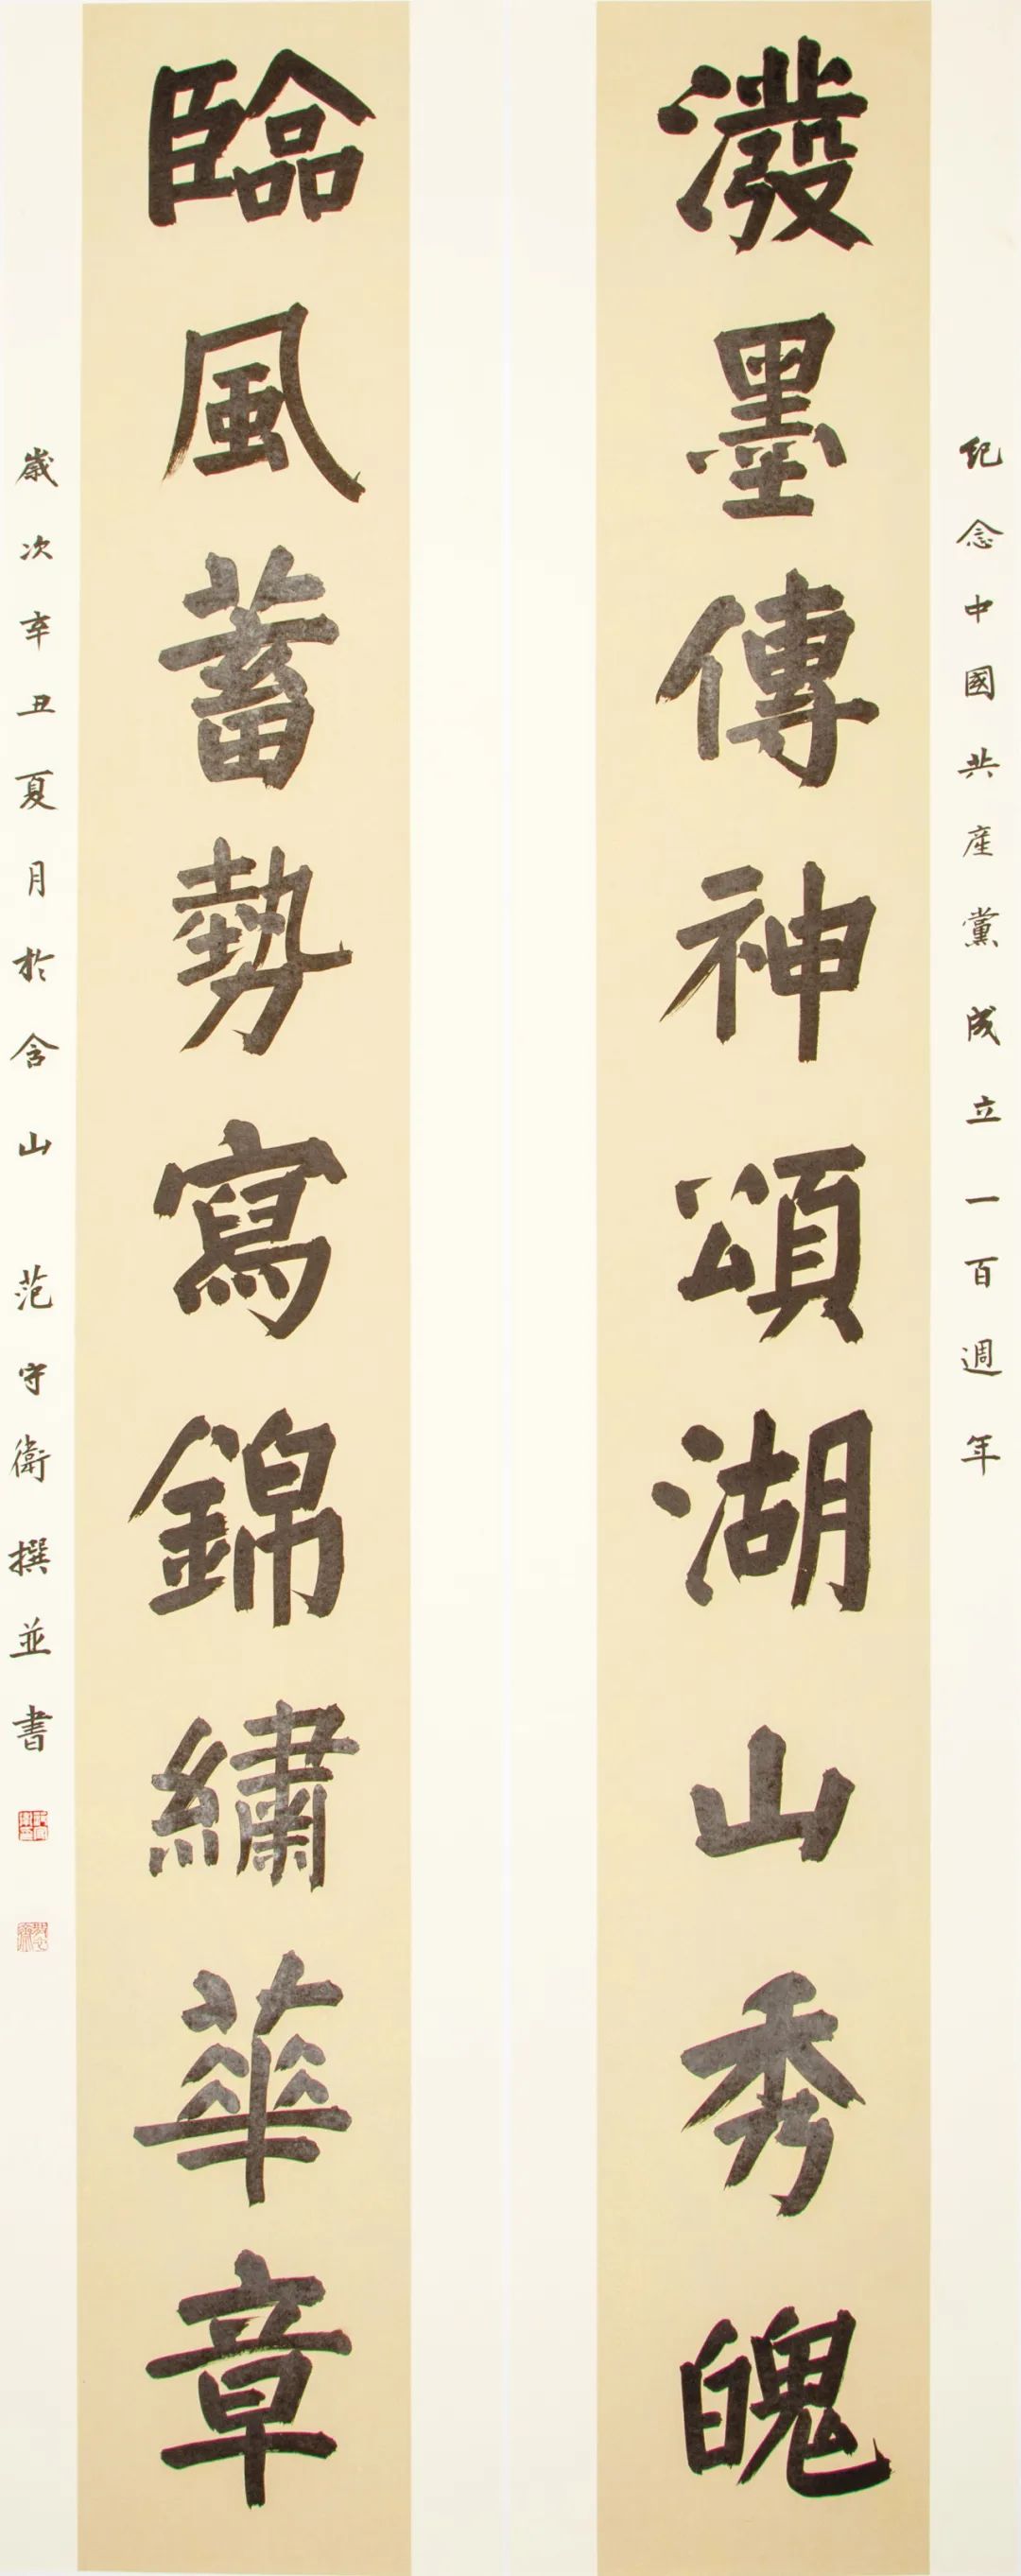 紀念中國共產黨成立一百週年
潑墨傳神頌湖山秀魄
臨風蓄勢寫錦繡華章
歲次辛丑夏月於含山 范守衛撰並書